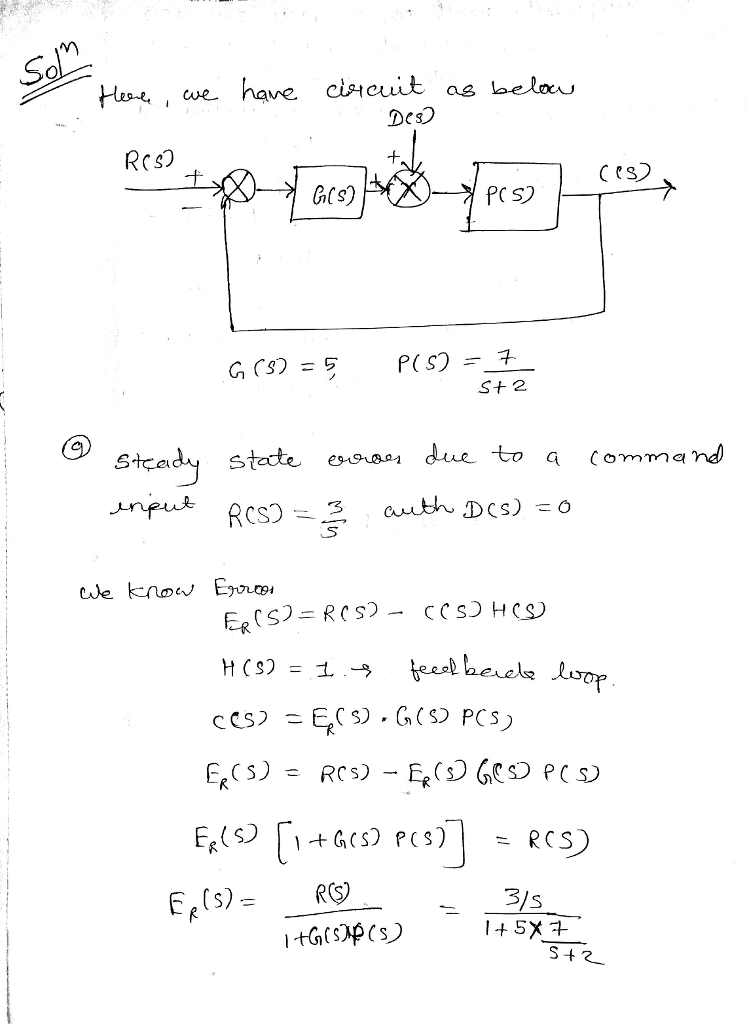 Soln
Here, we have circuit as below
D(s)
R(s) + + C(s)
G(s) + P(s)
−
G(s) = 5, P(s) = 7/(s+2)
(a) Steady state error due to a command
input R(s) = 3/s with D(s) = 0
We know Error
E_R(s) = R(s) − C(s) H(s)
H(s) = 1 → feedback loop.
C(s) = E_R(s) . G(s) P(s)
E_R(s) = R(s) − E_R(s) G(s) P(s)
E_R(s) [1 + G(s) P(s)] = R(s)
E_R(s) = R(s)/(1+G(s)P(s)) = (3/s)/(1+5×7/(s+2))